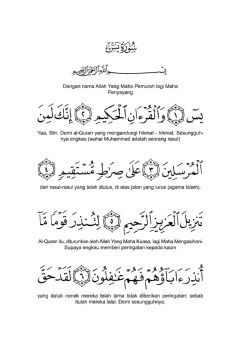 سُورَةُ يسٓ
بِسْمِ اللَّهِ الرَّحْمَٰنِ الرَّحِيمِ
Dengan nama Allah Yang Maha Pemurah lagi Maha
Penyayang
يسٓ ١ وَالْقُرْءَانِ الْحَكِيمِ ٢ إِنَّكَ لَمِنَ
Yaa, Siin. Demi al-Quran yang mengandungi hikmat - hikmat. Sesungguh-
nya engkau (wahai Muhammad adalah seorang rasul)
الْمُرْسَلِينَ ٣ عَلَىٰ صِرَٰطٍ مُّسْتَقِيمٍ ٤
dari rasul-rasul yang telah diutus, di atas jalan yang lurus (agama Islam).
تَنزِيلَ الْعَزِيزِ الرَّحِيمِ ٥ لِتُنذِرَ قَوْمًا مَّآ
Al-Quran itu, diturunkan oleh Allah Yang Maha Kuasa, lagi Maha Mengasihani.
Supaya engkau memberi peringatan kepada kaum
أُنذِرَ ءَابَآؤُهُمْ فَهُمْ غَٰفِلُونَ ٦ لَقَدْ حَقَّ
yang datuk nenek mereka telah lama tidak diberikan peringatan: sebab
itulah mereka lalai. Demi sesungguhnya,